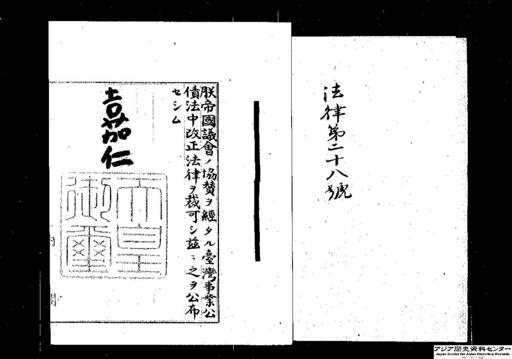 法律第二十八號
朕帝國議會ノ協賛ヲ經タル臺灣事業公
債法中改正法律ヲ裁可シ玆ニ之ヲ公布
セシム
嘉仁
天皇
御璽
アジア歴史資料センター
Japan Center for Asian Historical Records